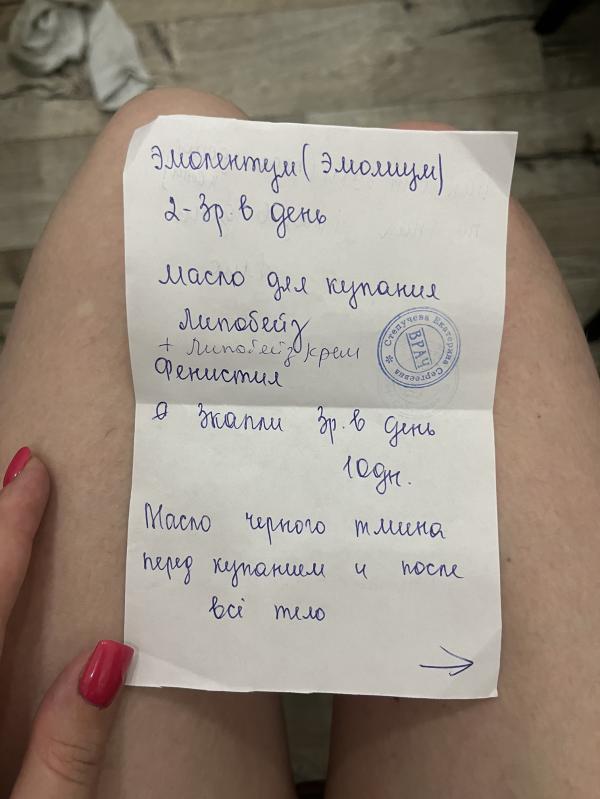 Эмолентум (Эмолиум)
2-3р. в день
Масло для купания
Липобейз
+ Липобейз крем
Фенистил
3 капли 3р. в день
10дн.
Масло черного тмина
перед купанием и после
всё тело
→
Степучева Екатерина Сергеевна
ВРАЧ